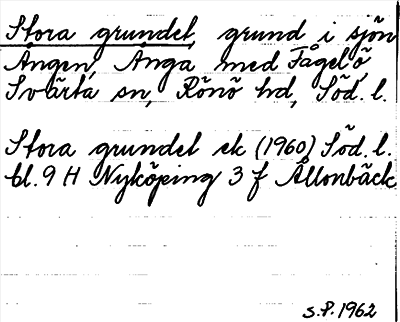 Stora grundet, grund i sjön
Ången, Ånga med Fågelö,
Svärta sn, Rönö hd, Söd. l.
Stora grundet ek (1960) Söd. l.
bl. 9 H Nyköping 3 f Ållonbäck
S.P. 1962